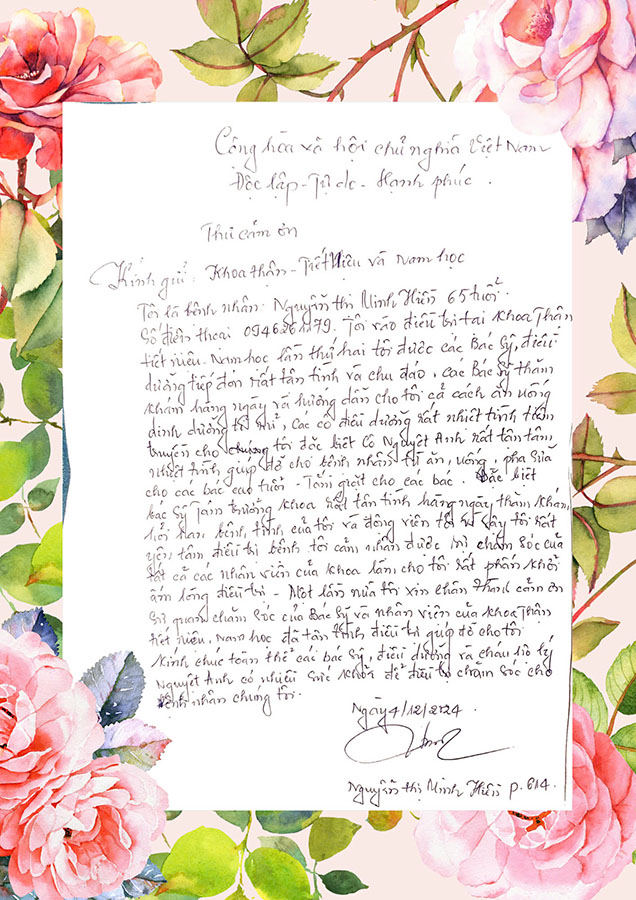 Cộng hòa xã hội chủ nghĩa Việt Nam
Độc lập - Tự do - Hạnh phúc.
Thư cảm ơn
Kính gửi: Khoa thận - Tiết Niệu và Nam học
Tôi là bệnh nhân: Nguyễn thị Minh Hiền 65 tuổi.
Số điện thoại Tôi vào điều trị tại Khoa Thận
tiết niệu - Nam học lần thứ hai tôi được các Bác Sỹ, điều
dưỡng tiếp đón rất tận tình và chu đáo, các Bác Sỹ thăm
khám hàng ngày và hướng dẫn cho tôi cả cách ăn uống
dinh dưỡng tỉ mỉ, các cô điều dưỡng rất nhiệt tình tiêm
truyền cho chúng tôi đặc biệt cô Nguyệt Anh rất tận tâm,
nhiệt tình giúp đỡ cho bệnh nhân từ ăn, uống, pha sữa
cho các bác cao tuổi - Tắm giặt cho các bác. Đặc biệt
bác Sỹ trưởng Khoa rất tận tình hàng ngày, thăm khám,
hỏi han bệnh, tình của tôi và động viên tôi vì vậy tôi rất
yên tâm điều trị bệnh tôi cảm nhận được sự chăm sóc của
tất cả các nhân viên của khoa làm cho tôi rất phấn khởi
ấm lòng điều trị - Một lần nữa tôi xin chân thành cảm ơn
sự quan chăm sóc của Bác Sỹ và nhân viên của khoa Thận
tiết niệu, Nam học đã tận tình điều trị giúp đỡ cho tôi
Kính chúc toàn thể các bác sỹ, điều dưỡng và cháu hộ lý
Nguyệt Anh có nhiều sức khỏe để điều trị chăm sóc cho
bệnh nhân chúng tôi.
Ngày 4/12/2024
Nguyễn thị Minh Hiền p. 614.